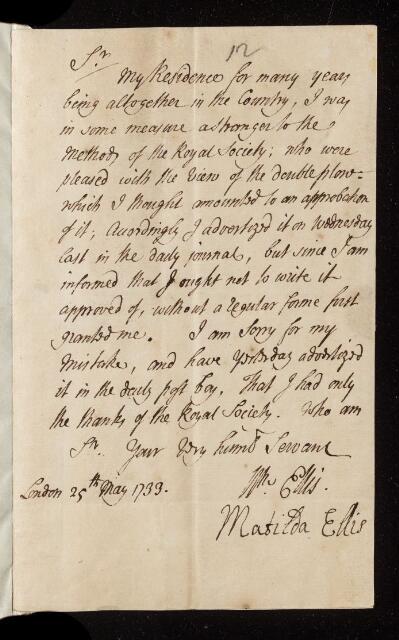 12
Sr.
My Residence for many years
being altogether in the Country, I was
in some measure a stranger to the
methods of the Royal Society; who were
pleased with the view of the double plow=
which I thought amounted to an approbation
of it; Accordingly I advertized it on Wednesday
last in the daily journal, but since I am
informed that I ought not to write it
approved of, without a regular forme first
granted me. I am sorry for my
mistake, and have yesterday advertized
it in the daily post boy, That I had only
the thanks of the Royal Society. Who am
Sr. Your Very humb Servant
London 25th May 1733. Wm Ellis.
Matilda Ellis